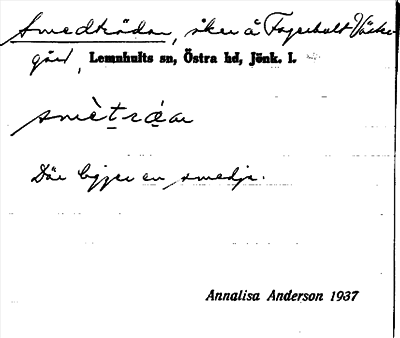 Smedträdan, åker å Fagerhult Väster
gård, Lemnhults sn, Östra hd, Jönk. l.
smètrǻa
Där ligger en smedja.
Annalisa Anderson 1937